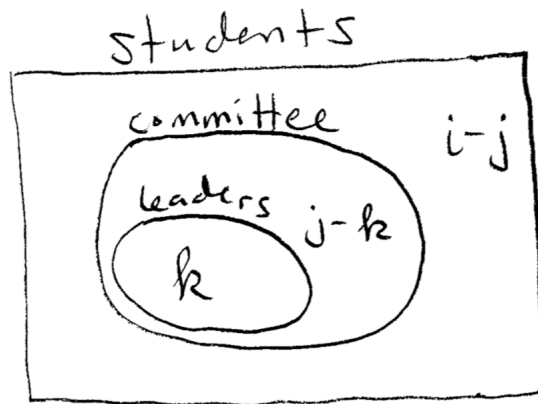 students
committee
i-j
leaders
j-k
k